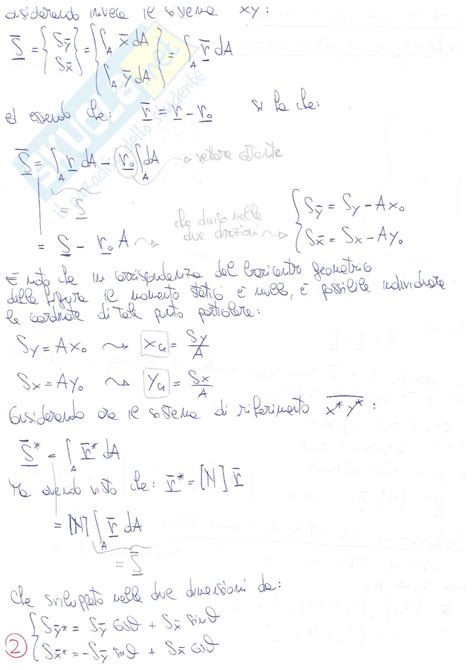 considerando invece il sistema xy:
S̄ = { Sȳ Sx̄ } = { ∫A x̄ dA ∫A ȳ dA } = ∫A r̄ dA
ed essendo che: r̄ = r - r₀ si ha che:
S̄ = ∫A r dA - r₀ ∫A dA → vettore
= S
= S - r₀ A → che diviso nelle due direzioni { Sȳ = Sy - Ax₀ Sx̄ = Sx - Ay₀
È noto che in corrispondenza del baricentro geometrico
della figura il momento statico è nullo, è possibile individuare
le coordinate di tale punto particolare:
Sy = Ax₀ ⇝ xG = Sy/A
Sx = Ay₀ ⇝ yG = Sx/A
Considerando ora il sistema di riferimento x̄* ȳ*:
S̄* = ∫A r̄* dA
Ma avendo visto che: r̄* = [N] r̄
= [N] ∫A r̄ dA
= S̄
Che sviluppato nelle due dimensioni da:
{ Sȳ* = Sȳ cosϑ + Sx̄ sinϑ
② Sx̄* = -Sȳ sinϑ + Sx̄ cosϑ